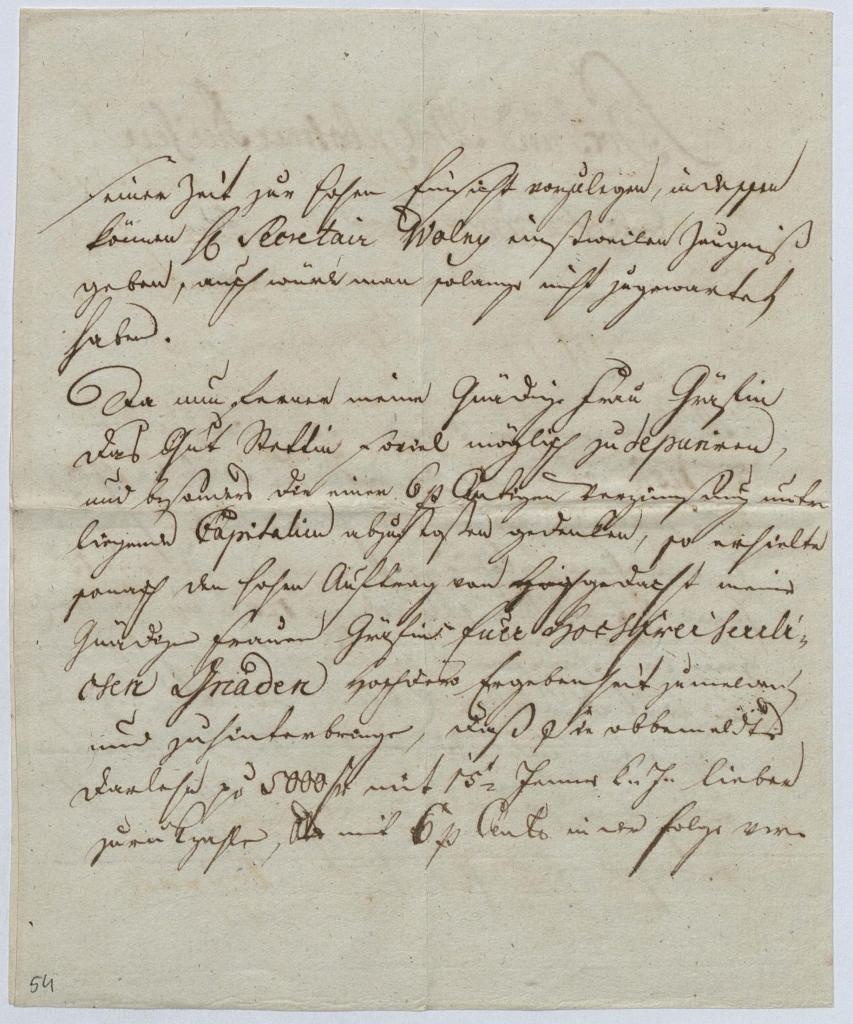 seiner Zeit zur hohen Einsicht vorzulegen, indessen
können H Secretair Wolny einstweilen Zeugniß
geben, auch würde man solange nicht zugewartet
haben.
Da nun ferner meine Gnädige Frau Gräfin
das Gut Stettin soviel möglich zu depuriren,
und besonders die einer 6 p Centigen Verzinnsung unter
liegende Capitalien abzustossen gedenken, so erhielte
sonach den hohen Auftrag von Hochgedacht meiner
Gnädigen Frauen Gräfin Euer Hochfreiherrli-
chen Gnaden Hochdero Ergebenheit zumelden
und zuhinterbringe, daß Sie obbemeldte
Darlehn pr 5000 f mit 15t Jenner k. J. lieber
zurükzahle, als mit 6 p Cento in der Folge ver-
54